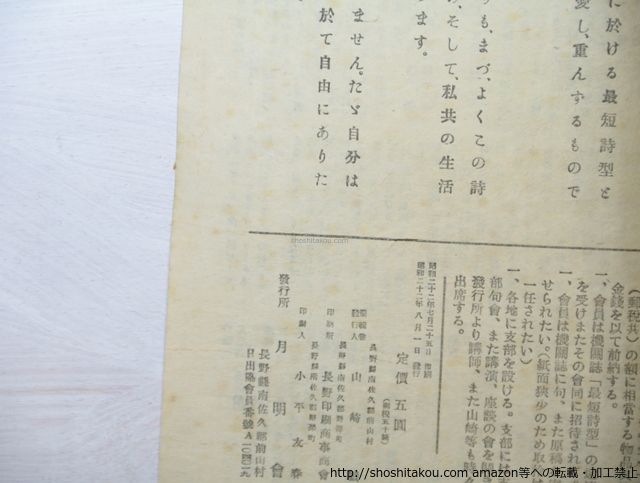 に於ける最短詩型と
愛し、重んずるもので
も、まづ、よくこの詩
そして、私共の生活
ます。
ません。たゞ自分は
於て自由にありた
shoshitakou.com
(郵税共)の額に相當する物品
金錢を以て前納する。
一、會員は機關誌「最短詩型」の
を受けまたその會同に招待され
一、會員は機關誌に句、また原稿
せられたい。(紙面狭少のため取
一任されたい)
一、各地に支部を設ける。支部には
部句會、また講演、座談の會を開
發行所より講師、また山崎等も時
出席する。
昭和二十二年七月二十五日 印刷
昭和二十二年八月一日 發行
定價五圓
(郵税五十錢)
長野縣南佐久郡前山村
發行人 山崎
長野縣南佐久郡野澤町
印刷所 長野印刷商事商會
長野縣南佐久郡野澤町
印刷人 小平友春
發行所 月明會
長野縣南佐久郡前山村
日出協會員番號A一〇四一九
http://shoshitakou.com amazon等への転載・加工禁止